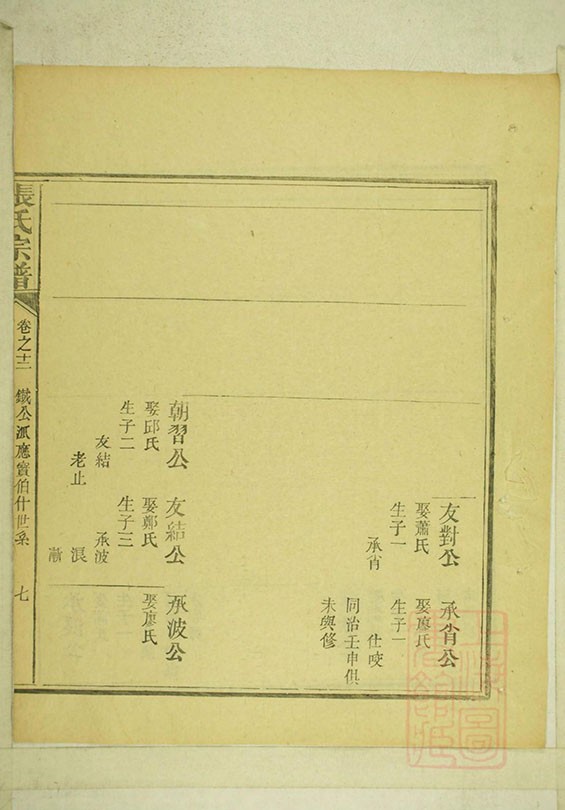 友對公
娶蕭氏
生子一
承省
承省公
娶廖氏
生子一
仕咬
同治壬申俱
未與修
朝習公
娶邱氏
生子二
友結
老止
友結公
娶鄭氏
生子三
承波
浪
漸
承波公
娶廖氏
張氏宗譜
卷之十二
鐵公派應寶伯什世系
七
上海圖